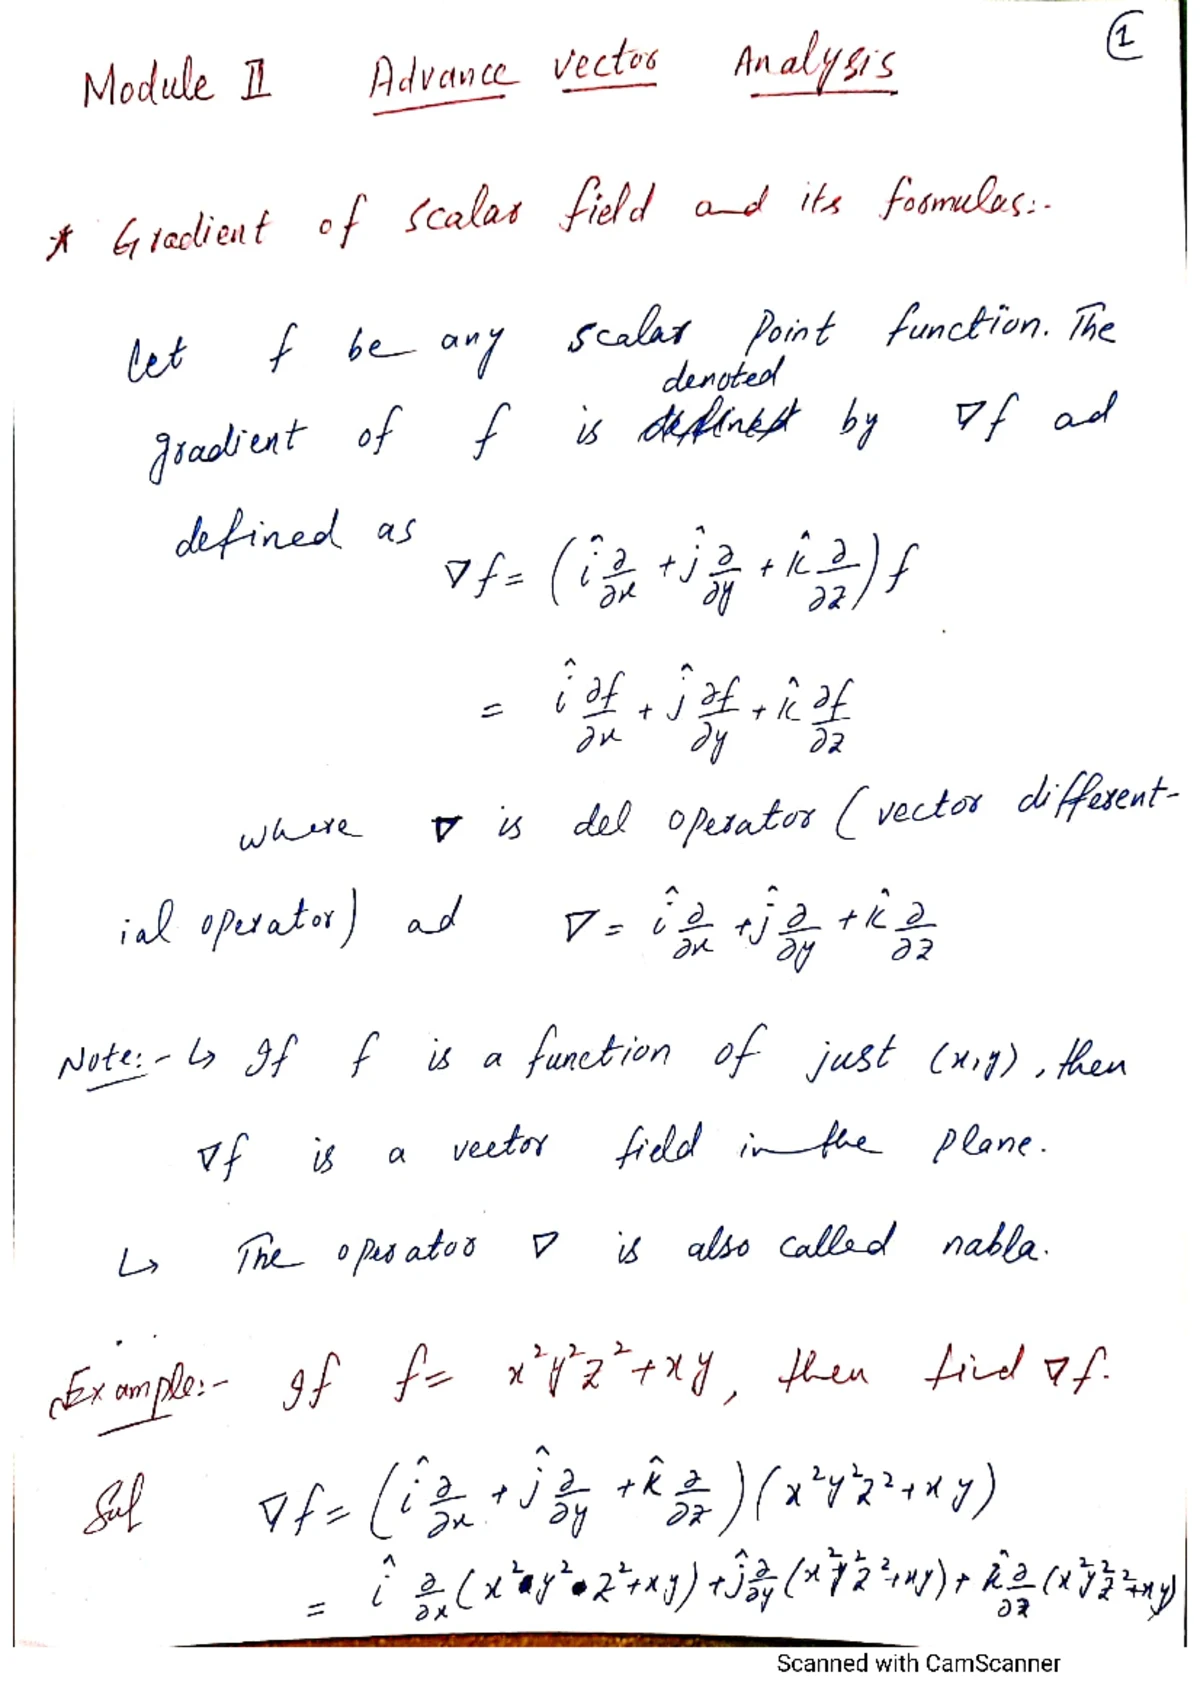 1
Module II Advance vector Analysis
* Gradient of scalar field and its formulas:-
Let f be any scalar Point function. The
denoted
gradient of f is by ∇f ad
defined as
∇f = (î ∂/∂x + ĵ ∂/∂y + k̂ ∂/∂z) f
= î ∂f/∂x + ĵ ∂f/∂y + k̂ ∂f/∂z
where ∇ is del operator (vector different-
ial operator) ad ∇ = î ∂/∂x + ĵ ∂/∂y + k̂ ∂/∂z
Note:- ↳ If f is a function of just (x,y), then
∇f is a vector field in the plane.
↳ The operator ∇ is also called nabla.
Example:- If f = x²y²z² + xy, then find ∇f.
Sol ∇f = (î ∂/∂x + ĵ ∂/∂y + k̂ ∂/∂z) (x²y²z² + xy)
= î ∂/∂x (x²y²z² + xy) + ĵ ∂/∂y (x²y²z² + xy) + k̂ ∂/∂z (x²y²z² + xy)
Scanned with CamScanner